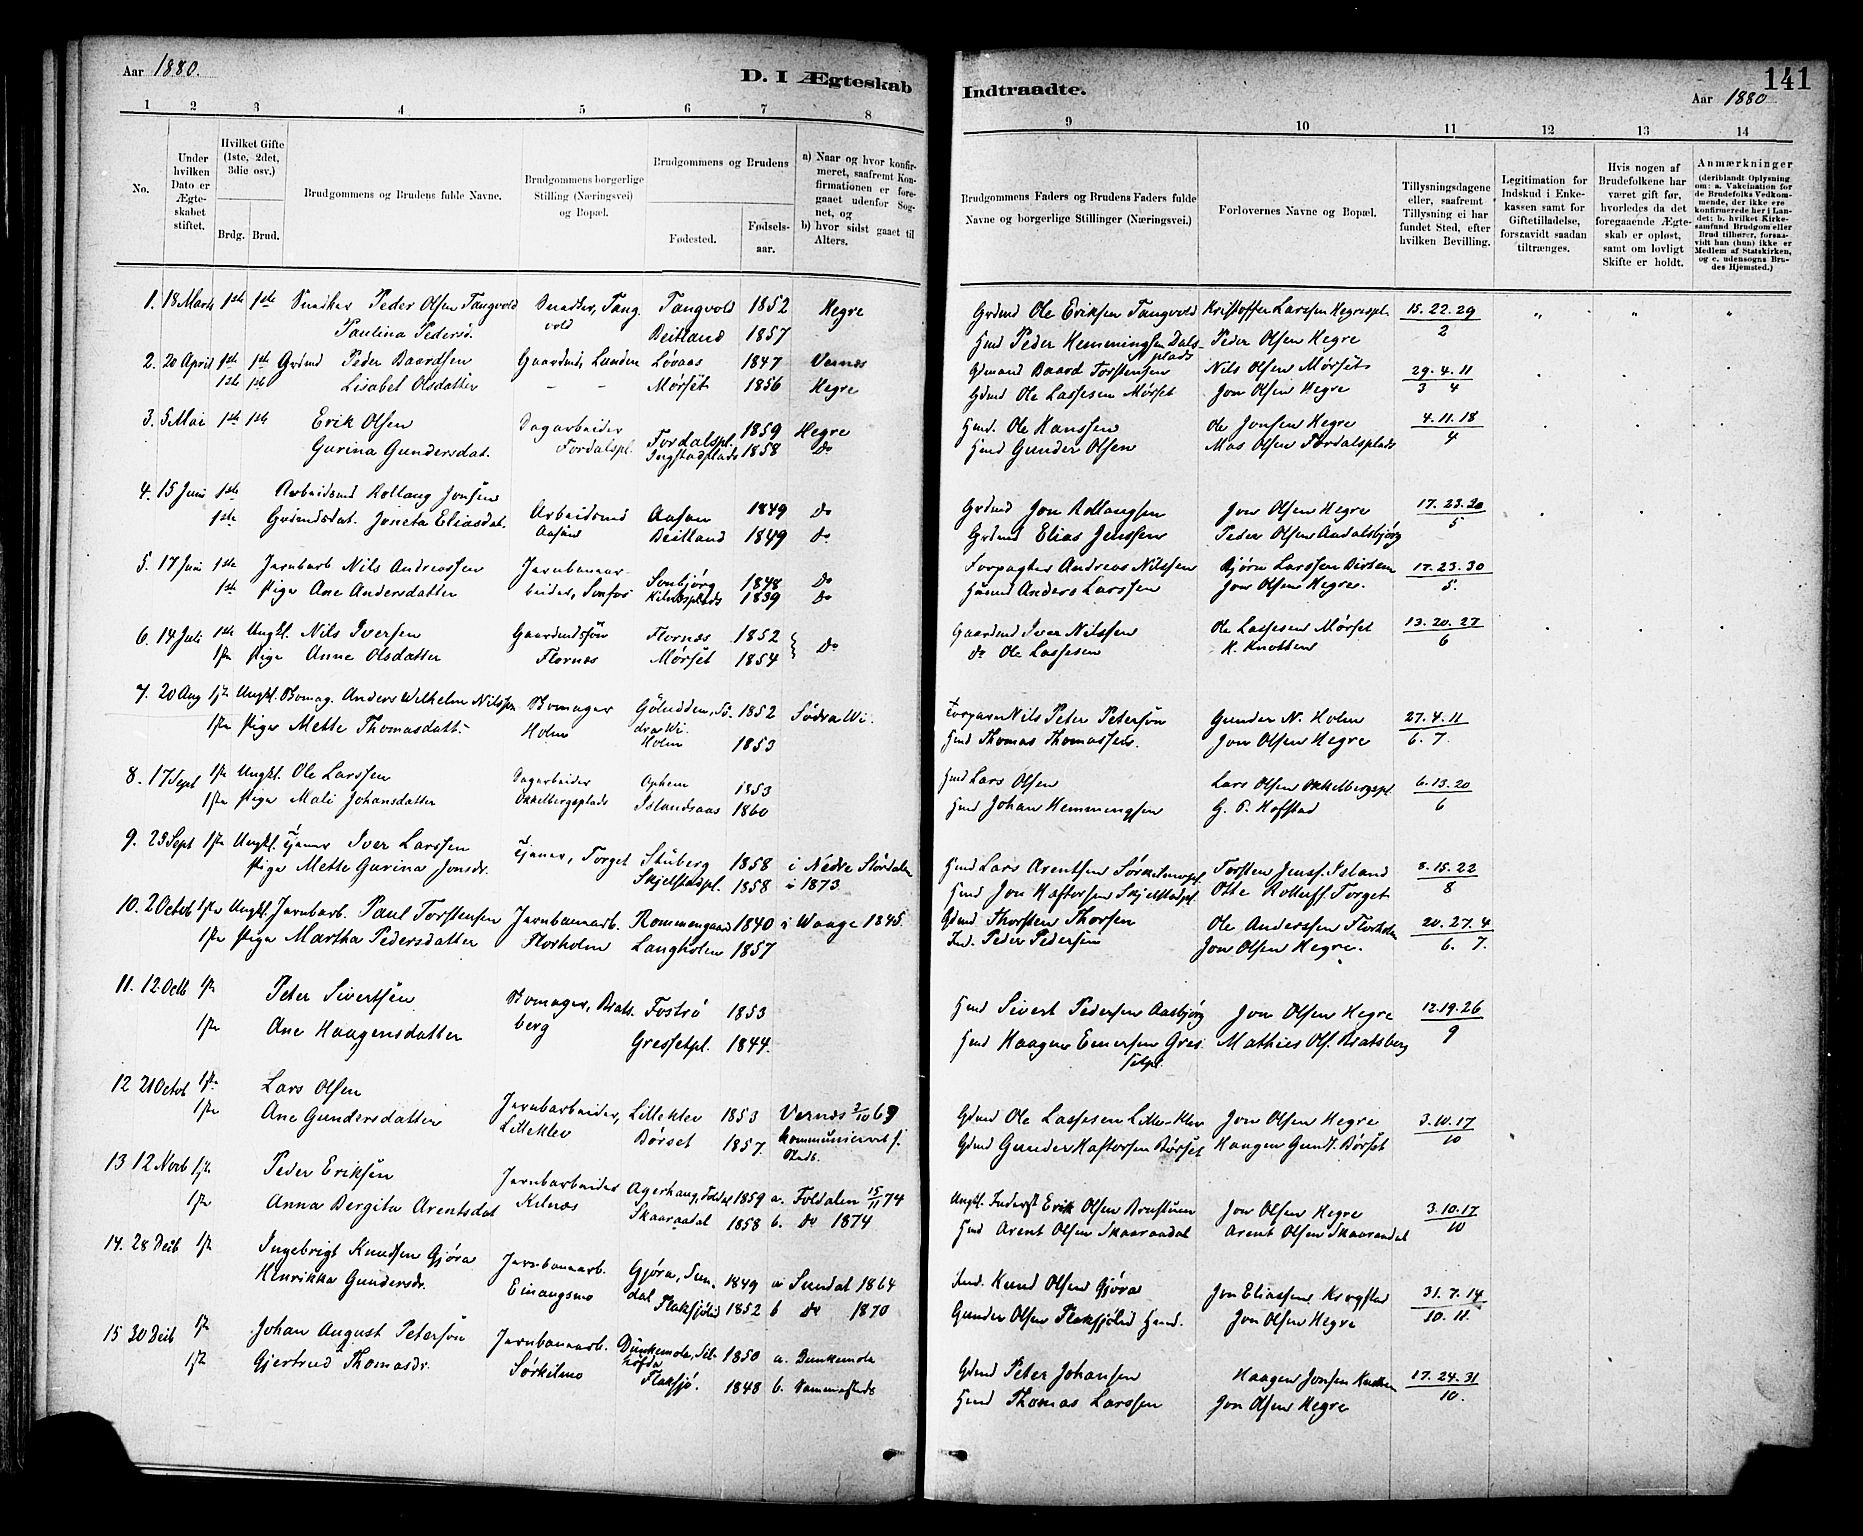 Aar 1880.
D. I Ægteskab
Indtraadte.
141
Aar 1880
1 2 3 4 5 6 7 8
9 10 11 12 13 14
No.
Under hvilken Dato er Ægteskabet stiftet.
Hvilket Gifte (1ste, 2det, 3die osv.)
Brdg. Brud.
Brudgommens og Brudens fulde Navne.
Brudgommens borgerlige Stilling (Næringsvei) og Bopæl.
Brudgommens og Brudens
Fødested.
Fødselsaar.
a) Naar og hvor konfirmeret, saafremt Konfirmationen er foregaaet udenfor Sognet, og
b) hvor sidst gaaet til Alters.
Brudgommens Faders og Brudens Faders fulde Navne og borgerlige Stillinger (Næringsvei.)
Forlovernes Navne og Bopæl.
Tillysningsdagene eller, saafremt Tillysning ei har fundet Sted, efter hvilken Bevilling.
Legitimation for Indskud i Enkekassen samt for Giftetilladelse, forsaavidt saadan tiltrænges.
Hvis nogen af Brudefolkene har været gift før, hvorledes da det foregaaende Ægteskab er opløst, samt om lovligt Skifte er holdt.
Anmærkninger (deriblandt Oplysning om: a. Vakcination for de Brudefolks Vedkommende, der ikke ere konfirmerede her i Landet; b. hvilket Kirkesamfund Brudgom eller Brud tilhører, forsaavidt han (hun) ikke er Medlem af Statskirken, og c. udensogns Brudes Hjemsted.)
1. 18 Marts 1ste 1ste Snedker Peder Olsen Tangvold Snedker, Tangvold Tangvold 1852 Hegre Grdmd Ole Eriksen Tangvold Kristoffer Larssen Hegrespl. 15. 22. 29
Paulina Pedersd. Beitland 1857 Hmd Peder Hemmingsen Dalsplads Peder Olsen Hegre 2
2. 20 April 1ste 1ste Grdmd Peder Baardsen Gaardmd, Lunden Løvaas 1847 Vernes Grmand Baard Torstensen Nils Olsen Mørset 29. 4. 11
1ste 1ste Lisabet Olsdatter - - Mørset 1856 Hegre Grdmd Ole Lassesen Mørset Jon Olsen Hegre 3 4
3. 5 Mai 1ste 1ste Erik Olsen Dagarbeider Fordalspl. 1859 Hegre Hmd. Ole Hanssen Ole Jonsen Hegre 4. 11. 18
Gurina Gundersdat. Fordalspl. Ingstadplads 1858 Do Hmd Gunder Olsen Mas Olsen Fordalsplads 4
4. 15 Juni 1ste Arbeidsmd Rollaug Jonsen Arbeidsmd Aasan 1849 Do Grdmd Jon Rollaugsen Jon Olsen Hegre 17. 23. 30
1ste Grdmdsdat. Joneta Eliasdat. Aasan Beitland 1849 Do Grdmd Elias Jenssen Peder Olsen Audalsbjørg 5
5. 17 Juni 1ste Jernbarb Nils Andreassen Jernbanearbeider, Sonfos Sonbjørg 1848 Do Forpagter Andreas Nilssen Bjørn Larssen 17. 23. 30
1ste Pige Ane Andersdatter Kilnesplads 1839 Do Husmd Anders Larssen Jon Olsen Hegre. 5.
6. 14 Juli 1ste Ungkl. Nils Iversen Gaardmdssøn Flornæs 1852 Do Gaardmd Iver Nilssen Ole Lassesen Mørset 13. 20. 27
1ste Pige Anne Olsdatter Flornæs Mørset 1854 do Ole Lassesen K. Knotten 6
7. 20 Aug 1ste Ungkl. Skomag. Anders Wilhelm Nilssen Skomager Göludden, Södra Wi. 1852 Södra Wi. Nils Peter Petersön Gunder N. Holm 27. 4. 11
1ste Pige Mette Thomasdatt. Holm Holm 1853 Hmd Thomas Thomassen. Jon Olsen Hegre 6. 7.
8. 17 Sept 1ste Ungkl. Ole Larssen Dagarbeider Ophem 1853 Hmd Lars Olsen Lars Olsen Okkelbergspl. 6. 13. 20
1ste Pige Mali Johansdatter Okkelbergsplads Islandsaas 1860 Hmd Johan Hemmingsen G. P. Hofstad 6
9. 23 Sept 1ste Ungkl. Tjener Iver Larssen Tjener, Torget Stuberg 1858 i Nedre Stördalen Hmd Lars Arentsen Torsten Jenss. Island 8. 15. 22
Pige Mette Gurina Jonsdr. Skjelstadpl. 1858 i 1873. Hmd Jon Haftorsen Skjelstadpl. Otte Torget 8
10. 2 Octob 1ste Ungkl. Jernbarb. Paul Torstensen Jernbanearb. Rommengaard 1840 i Waage 1845. Grdmd Thorsten Thorsen Ole Anderssen Florholm 20. 27. 4
1ste Pige Martha Pedersdatter Florholm Langholm 1857 Peder Pedersen Jon Olsen Hegre. 6. 7.
11. 12 Octb 1ste Peter Sivertsen Skomager, Bratsberg Foströ 1853 Hmd Sivert Pedersen Aasbjörg Jon Olsen Hegre 12. 19. 26
1ste Ane Haagensdatter Gressetpl. 1844. Hmd Haagen Einersen Gressetpl. Mathies Ols. Bratsberg 9
12 21 Octob 1ste Lars Olsen Jernbarbeider, Lilleklev 1853 Vernes 3/10 69 Grdmd Ole Lassesen Lille-Klev Jon Olsen Hegre 3. 10. 17
1ste Ane Gundersdatter Lilleklev Börset 1857. kommuniceret f. Steds. Grdmd Gunder Haftorsen Börset Haagen Gund. Börset 10
13 12 Novb 1ste Peder Eriksen Jernbarbeider Agerhaug, Foldal 1859 a. Foldalen 15/11 74 Ungkl. Inderst Erik Olsen Jon Olsen Hegre 3. 10. 17
1ste Anna Bergita Arentsdat Kilnæs Skaaraadal 1858 b. Do 1874 Hmd Arent Olsen Skaaraadal Arent Olsen Skaaraadal 10
14. 28 Decb 1ste Ingebrigt Knudsen Gjøra Jernbanearb. Gjøra, Sundal 1849 a Sundal 1864 Knud Olsen Gjøra Jon Eliassen 31. 7. 14
Henrikka Gundersdr. Einangsmo Flaksjølid 1852 b Do 1870 Gunder Olsen Flaksjølid Hmd. Jon Olsen Hegre 10. 11.
15 30 Decb 1ste Johan August Petersön Jernbanearb. Dunkemola, 1850 a. Dunkemola Grdmd Peter Johansen Haagen Jonsen 17. 24. 31
1ste Gjertrud Thomasdr. Sörkilmo Flaksjö. 1848 b. Sammesteds Hmd Thomas Larssen Jon Olsen Hegre 10.